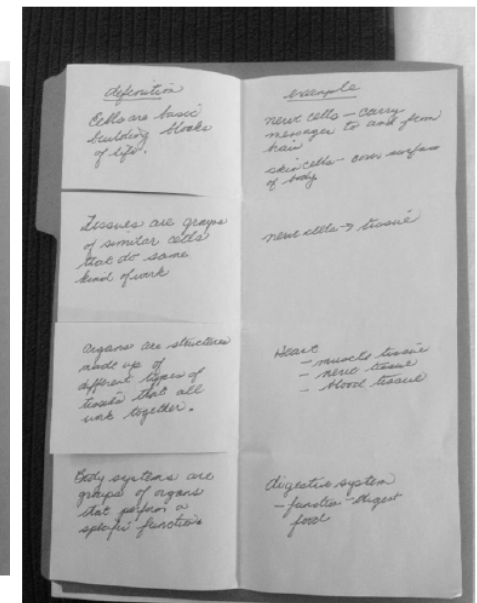 definition
Cells are basic
building blocks
of life.
Tissues are groups
of similar cells
that do same
kind of work
Organs are structures
made up of
different types of
tissues that all
work together.
Body systems are
groups of organs
that perform a
specific function
example
nerve cells - carry
messages to and from
brain
skin cells - cover surface
of body
nerve cells → tissue
Heart
- muscle tissue
- nerve tissue
- blood tissue
digestive system
- function - digest
food